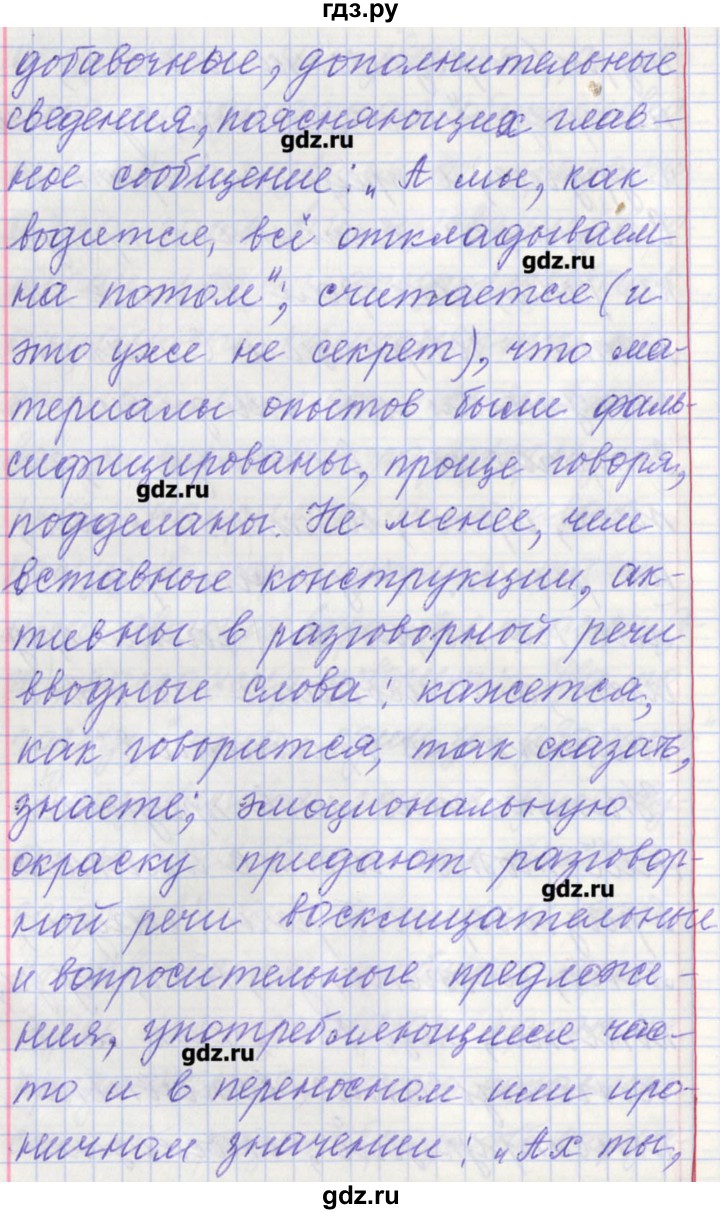 гдз.ру
добавочные, дополнительные
сведения, поясняющих глав-
gdz.ru
ное сообщение: „А мы, как
водится, всё откладываем
gdz.ru
на потом"; считается (и
это уже не секрет), что ма-
териалы опытов были фаль-
сифицированы, проще говоря,
gdz.ru
подделаны. Не менее, чем
вставные конструкции, ак-
тивны в разговорной речи
вводные слова: кажется,
как говорится, так сказать,
знаете; эмоциональную
окраску придают разговор-
gdz.ru
ной речи восклицательные
и вопросительные предложе-
ния, употребляющиеся час-
gdz.ru
то и в переносном или иро-
ничном значении: „Ах ты,
gdz.ru